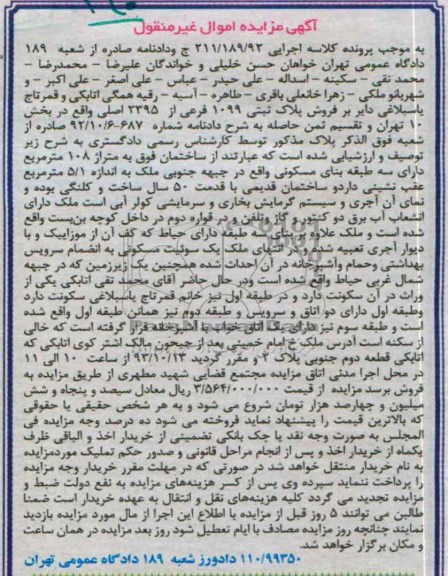 آگهی مزایده اموال غیرمنقول
به موجب پرونده کلاسه اجرایی ۲۱۱/۱۸۹/۹۲ ج ودادنامه صادره از شعبه ۱۸۹
دادگاه عمومی تهران خواهان حسن خلیلی و خواندگان علیرضا – محمدرضا –
محمد تقی – سکینه – اسداله – علی حیدر – عباس – علی اصغر – علی اکبر – و
شهربانو ملکی – زهرا خانعلی باقری – طاهره – آسیه – رقیه همگی اتابکی و قمرتاج
باسبلاغی دایر بر فروش پلاک ثبتی ۱۰۹۹ فرعی از ۳۳۹۵ اصلی واقع در بخش
۱۰ تهران و تقسیم ثمن حاصله به شرح دادنامه شماره ۶۸۷–۹۲/۱۰/۶ صادره از
شعبه فوق الذکر پلاک مذکور توسط کارشناس رسمی دادگستری به شرح زیر
توصیف و ارزشیابی شده است که عبارتند از ساختمان فوق به متراژ ۱۰۸ مترمربع
دارای سه طبقه بنای مسکونی واقع در جبهه جنوبی ملک به اندازه ۵/۱ مترمربع
عقب نشینی داردو ساختمان قدیمی با قدمت ۵۰ سال ساخت و کلنگی بوده و
نمای آن آجری و سیستم گرمایش بخاری و سرمایشی کولر آبی است ملک دارای
انشعاب آب برق دو کنتور و گاز وتلفن و در قواره دوم در داخل کوچه بن‌بست واقع
شده است و ملک علاوه بر بنای سه طبقه دارای حیاط که کف آن از موزاییک و با
دیوار آجری تعبیه شده در انتهای ملک یک سوئیت مسکونی به انضمام سرویس
بهداشتی وحمام وآشپزخانه در آن احداث شده همچنین یک زیرزمین که در جبهه
شمال غربی حیاط واقع شده است ودر حال حاضر آقای محمد تقی اتابکی یکی از
وراث در آن سکونت دارد و در طبقه اول نیز خانم قمرتاج باسبلاغی سکونت دارد
وطبقه اول دارای دو اتاق و سرویس و طبقه دوم نیز همانن طبقه اول واقع شده
است و طبقه سوم نیز دارای یک اتاق خواب با آشپزخانه قرار گرفته است که خالی
از سکنه است آدرس ملک خ امام خمینی بعد از جیحون مالک اشتر کوی اتابکی که
اتابکی قطعه دوم جنوبی پلاک ۳ و مقرر گردید ۹۳/۱۰/۱۳ از ساعت ۱۰ الی ۱۱
در محل اجرا مدنی اتاق مزایده مجتمع قضایی شهید مطهری از طریق مزایده به
فروش برسد مزایده از قیمت ۳/۵۶۴/۰۰۰/۰۰۰ ریال معادل سیصد و پنجاه و شش
میلیون و چهارصد هزار تومان شروع می شود و به هر شخص حقیقی یا حقوقی
که بالاترین قیمت را پیشنهاد نماید فروخته می شود ده درصد وجه مزایده فی
المجلس به صورت وجه نقد یا چک بانکی تضمینی از خریدار اخذ و الباقی ظرف
یکماه از خریدار اخذ و پس از انجام مراحل قانونی و صدور حکم تملیک موردمزایده
به نام خریدار منتقل خواهد شد در صورتی که در مهلت مقرر خریدار وجه مزایده
را پرداخت ننماید سپرده وی پس از کسر هزینه‌های مزایده به نفع دولت ضبط و
مزایده تجدید می گردد کلیه هزینه‌های نقل و انتقال به عهده خریدار است ضمنا
طالبین می توانند ۵ روز قبل از مزایده با اطلاع این اجرا از مال مورد مزایده بازدید
نمایند چنانچه روز مزایده مصادف با ایام تعطیل شود روز بعد مزایده در همان ساعت
و مکان برگزار خواهد شد.
۱۱۰/۹۹۳۵۰ دادورز شعبه ۱۸۹ دادگاه عمومی تهران